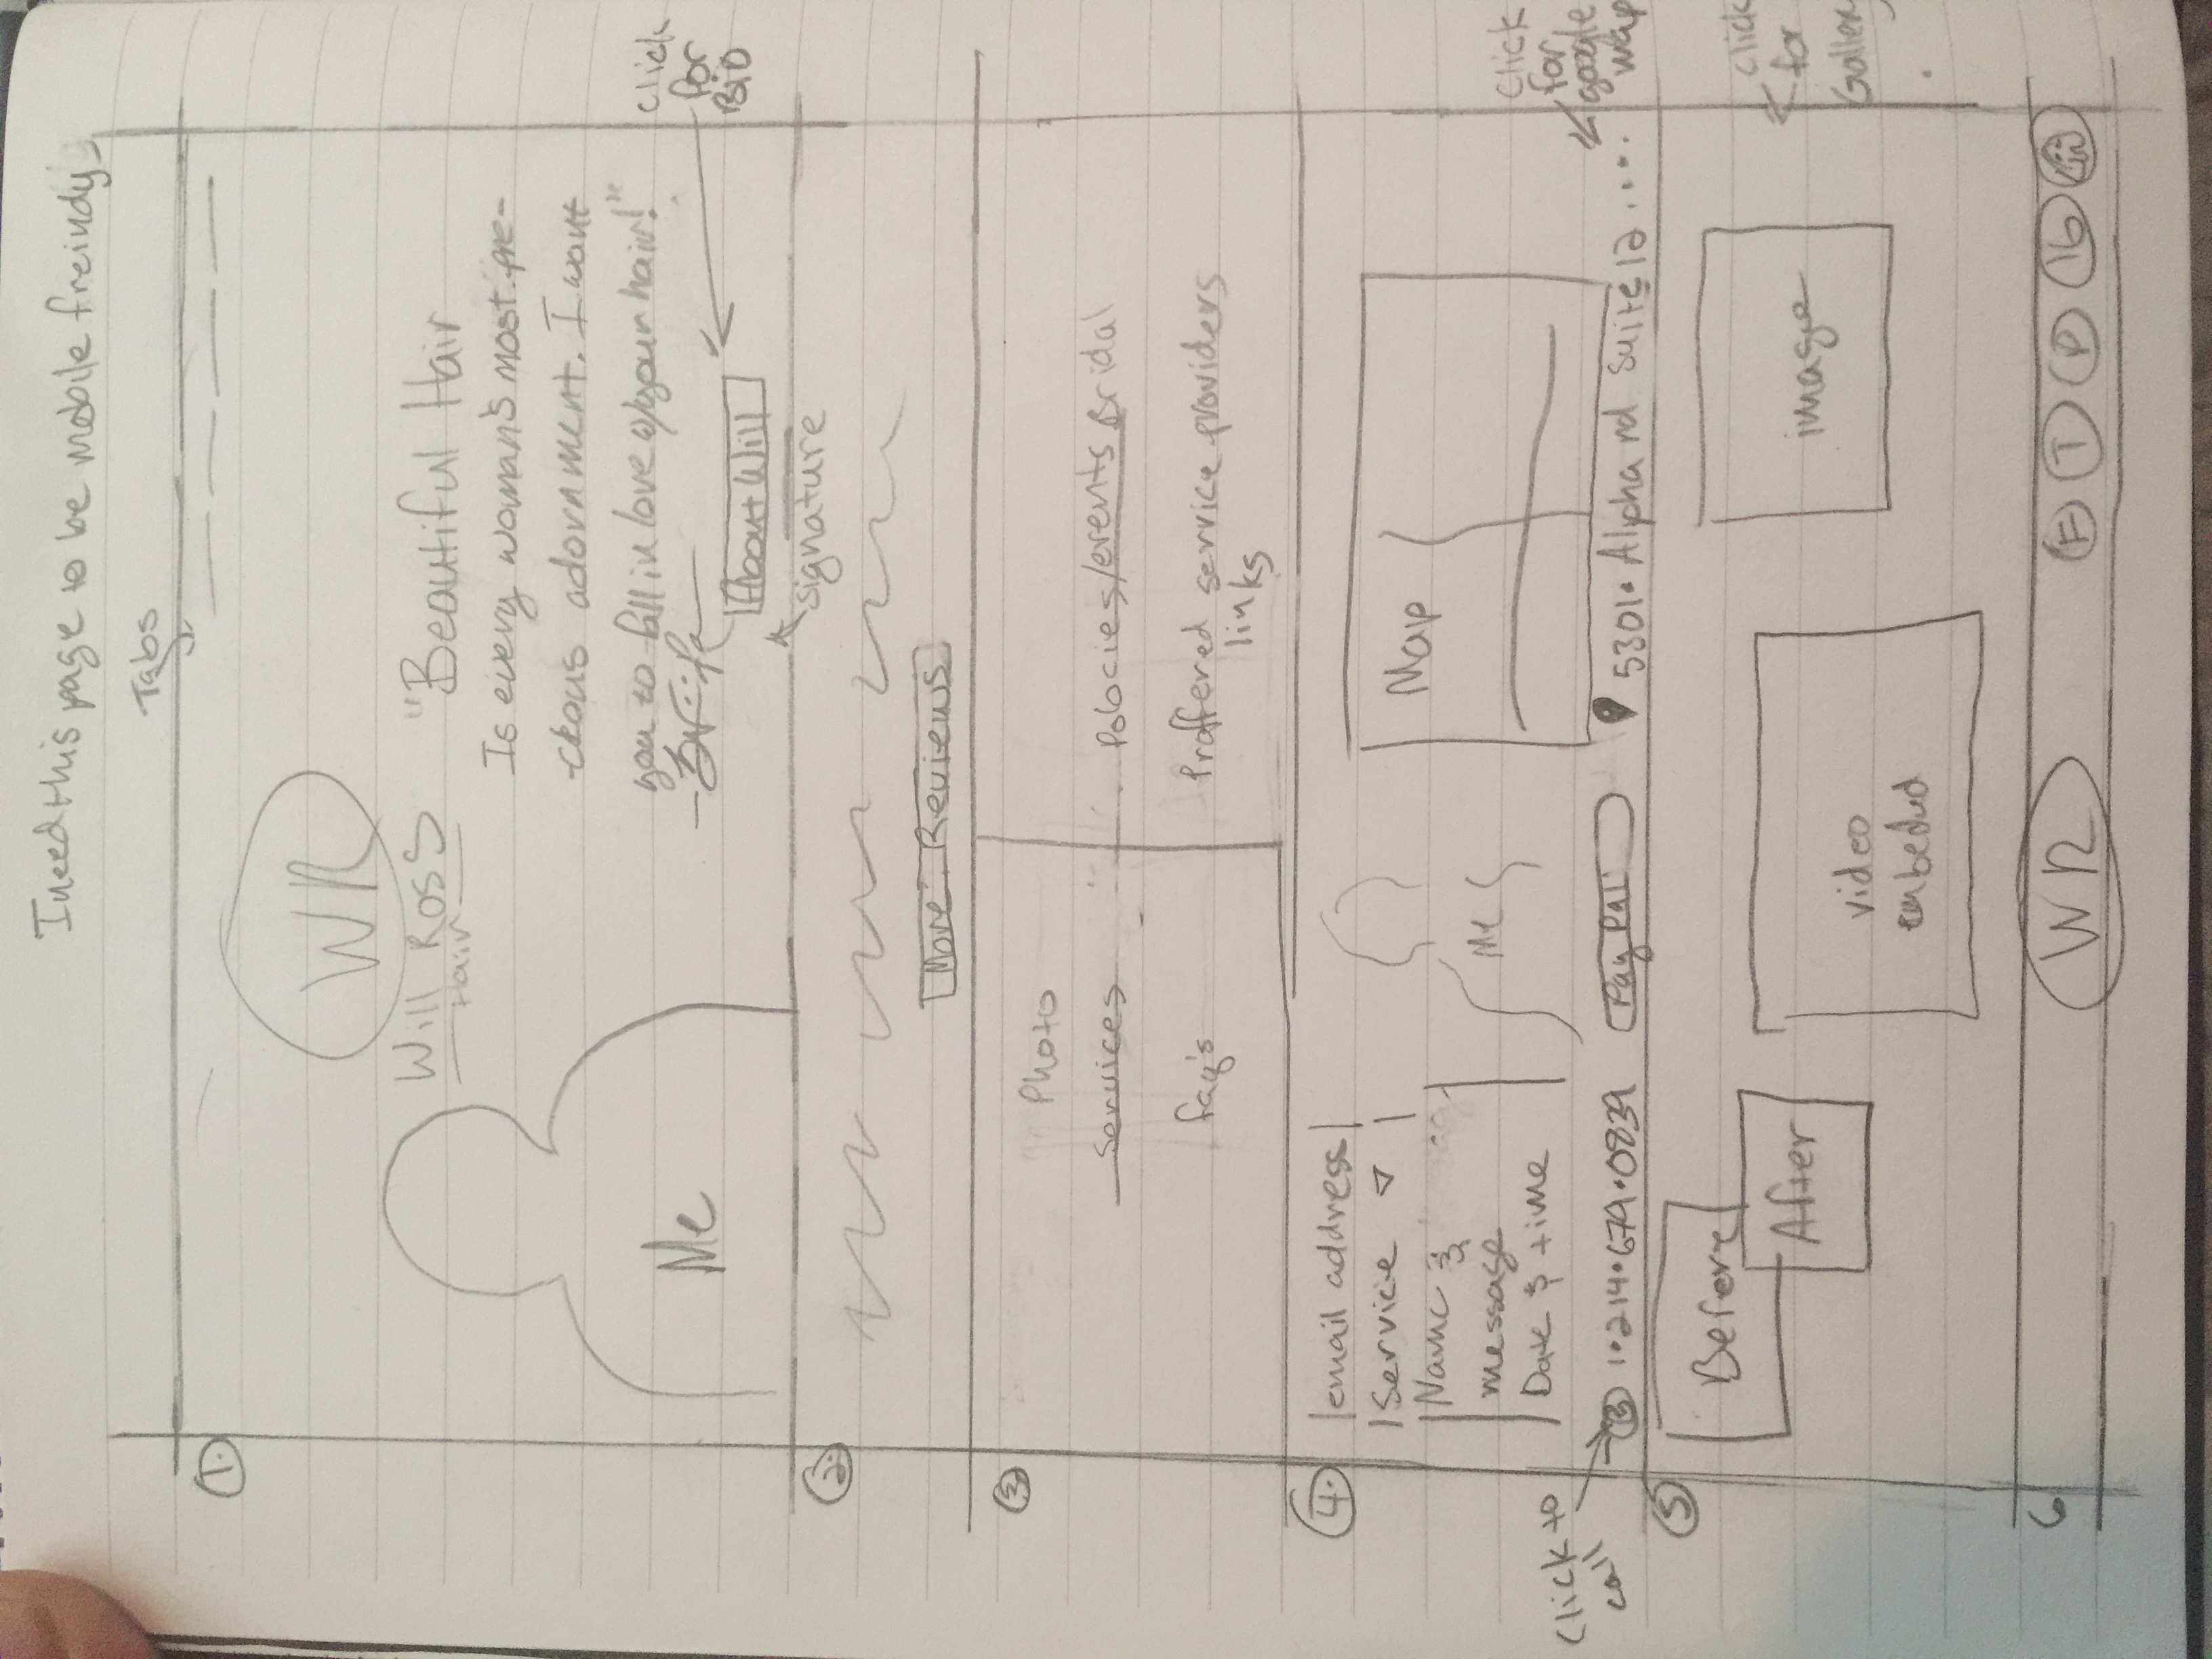 I need this page to be mobile freindy
Tabs
1.
WR
Will Ross
Hair
"Beautiful Hair
Is every womans most pre-
cious adornment. I want
you to fall in love w/your hair!"
About Will
click
for
BiO
signature
Me
2.
More Reviews
3
Photo
Services
faq's
Polocies/events Bridal
Proffered service providers
links
4.
email address
Service
Name &
message
Date & time
Me
Map
click to
call
1•214•679•0839
PayPal
5301• Alpha rd suite 12 ....
click
for
google
map
5
Before
After
video
embedud
image
click
for
Gallery
6
WR
F T P 16 in